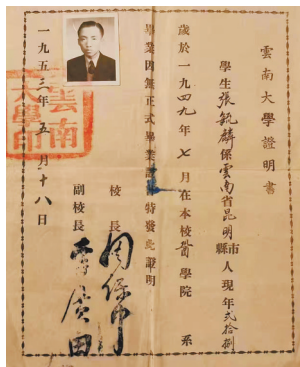 雲南大學證明書
學生張毓麟係雲南省昆明市縣人現年貳拾捌
歲於一九四九年七月在本校醫學院系
畢業因無正式畢業證特發此證明
校長周保中
副校長李廣田
一九五三年五月十八日
雲南大學印